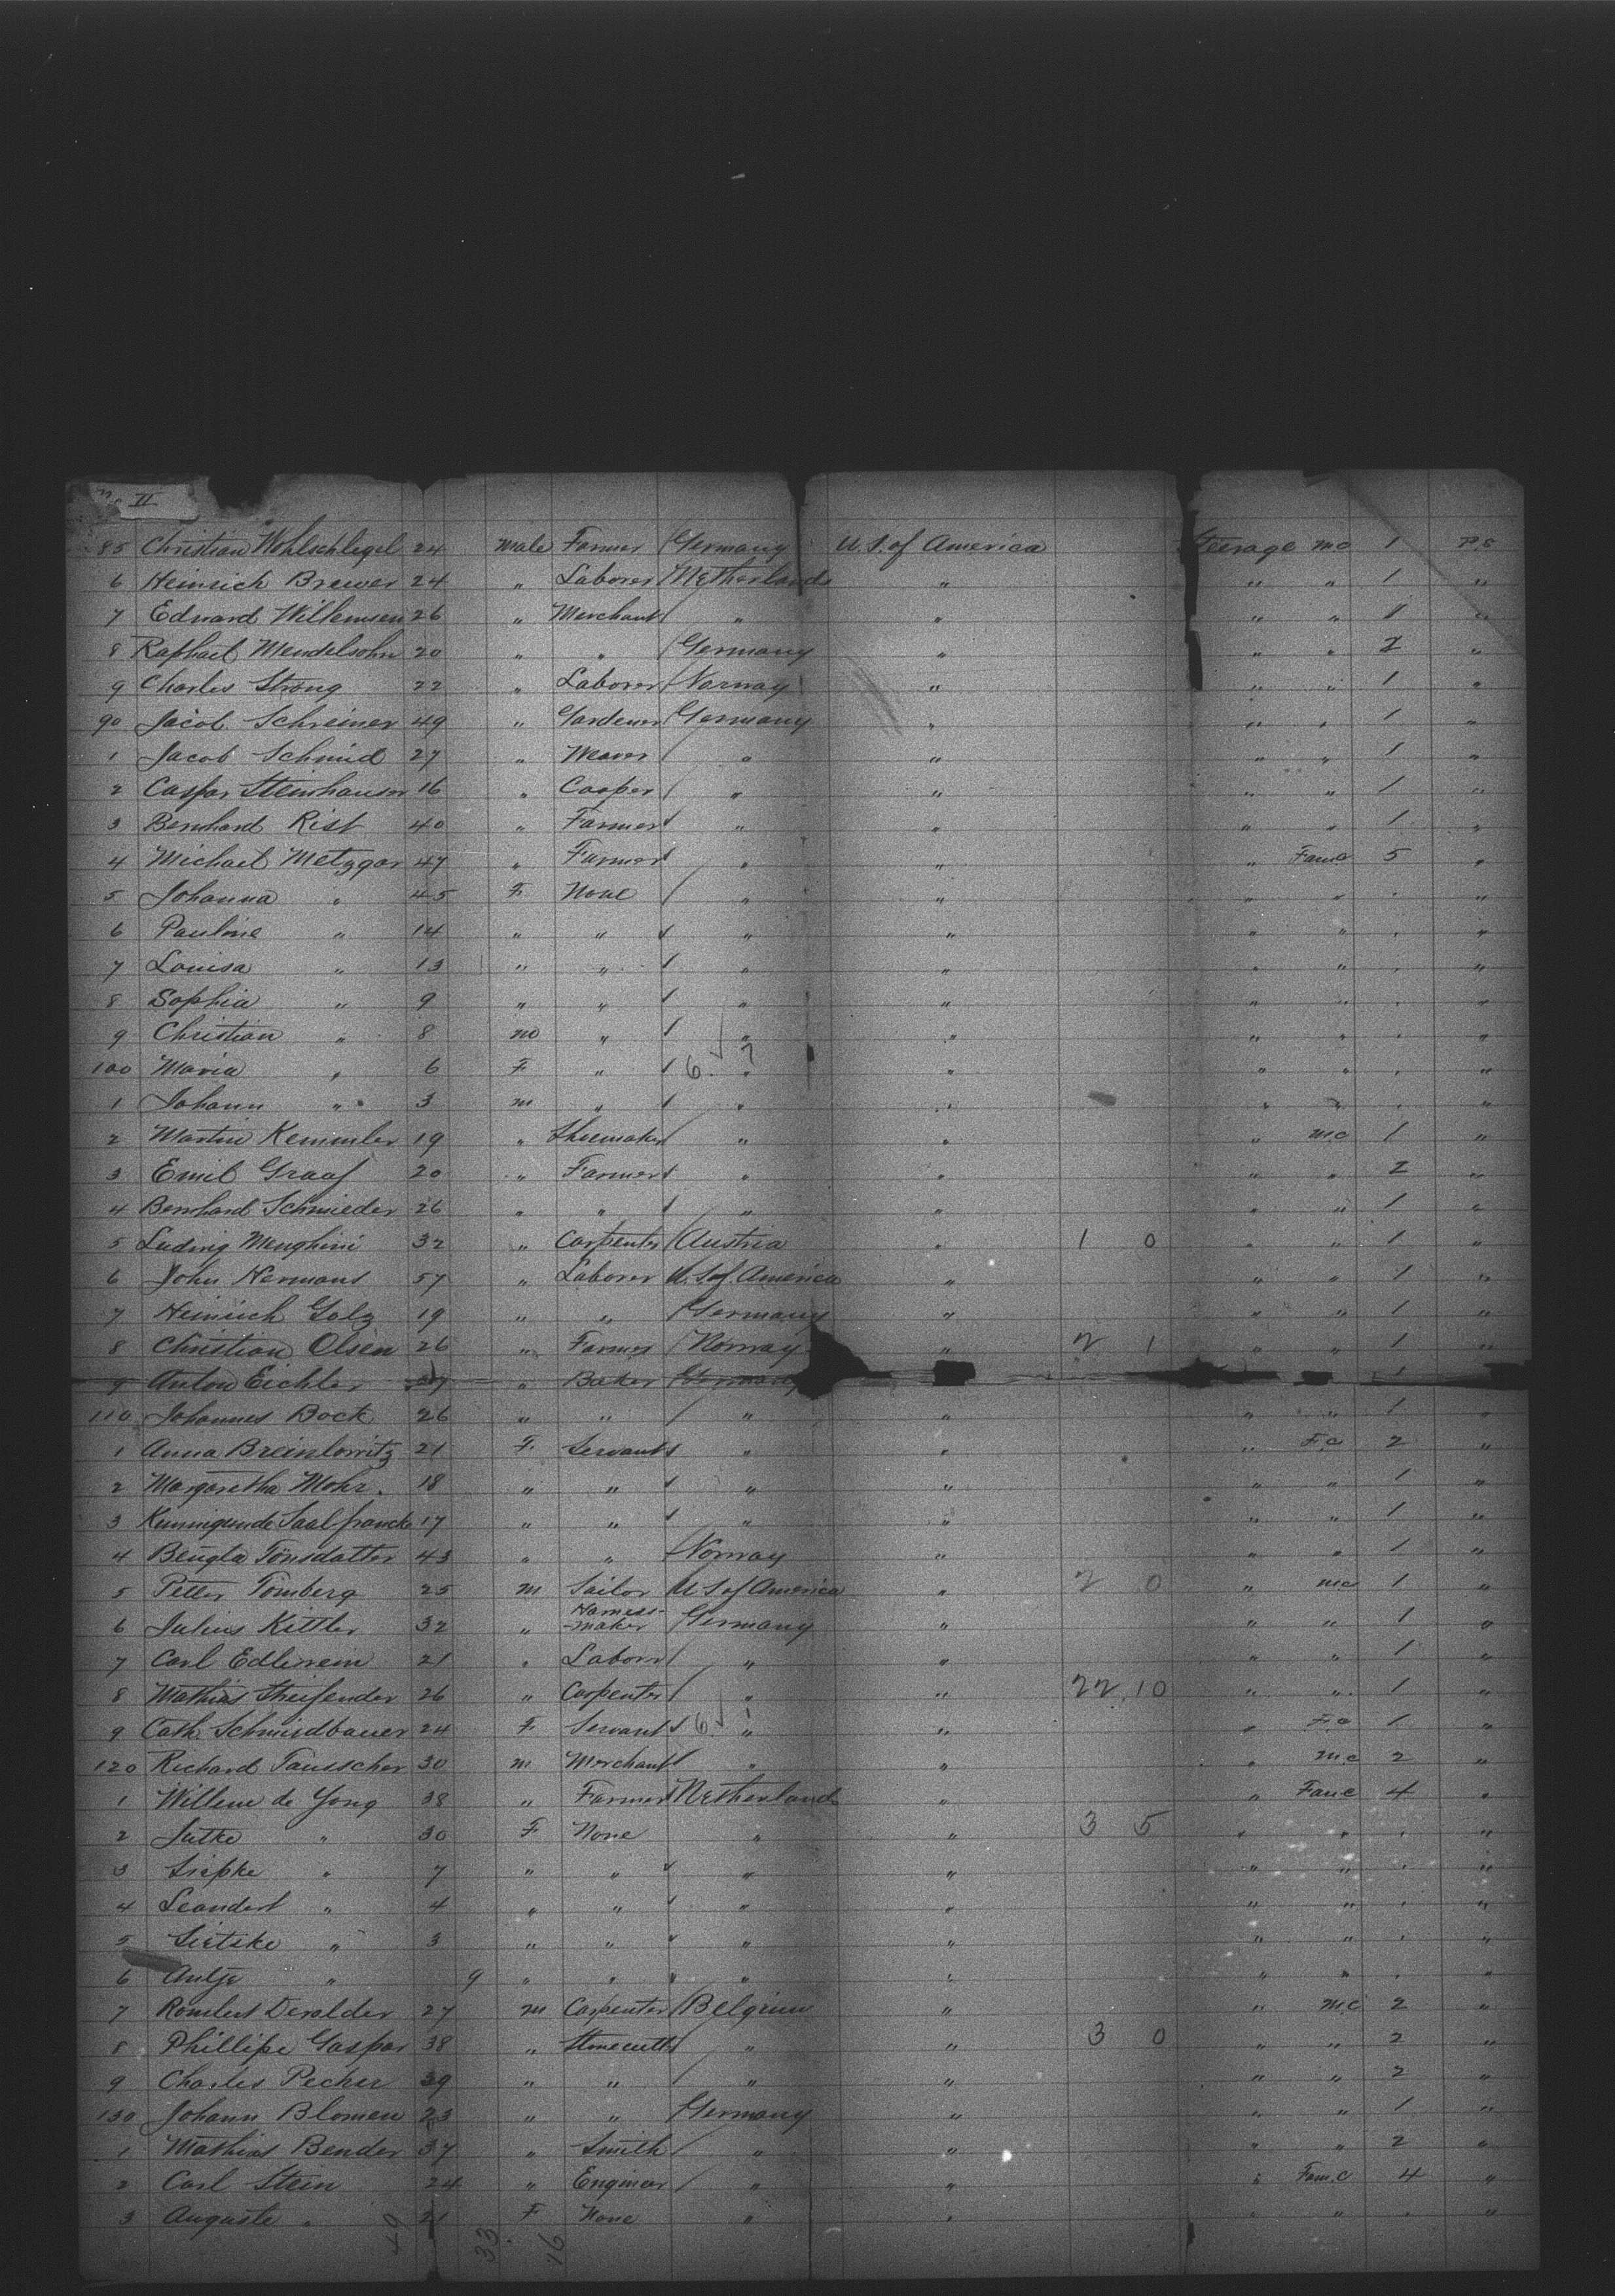 No II
85 Christian Wohlschlegel 24 Male Farmer Germany U.S. of America Steerage M.C 1 P.S
6 Heinrich Brewer 24 " Laborer Netherlands " " " 1 "
7 Edward Willemsen 26 " Merchant " " " " 1 "
8 Raphael Mendelsohn 20 " " Germany " " " 2 "
9 Charles Strong 22 " Laborer Norway " " " 1 "
90 Jacob Schreiner 49 " Gardener Germany " " " 1 "
1 Jacob Schmid 27 " Weaver " " " " 1 "
2 Caspar Steinhauser 16 " Cooper " " " " 1 "
3 Bernhard Rist 40 " Farmer " " " " 1 "
4 Michael Metzgar 47 " Farmer " " " Fam.C 5 "
5 Johanna " 45 F. None " " " " "
6 Pauline " 14 " " " " " " "
7 Louisa " 13 " " " " " " "
8 Sophia " 9 " " " " " " "
9 Christian " 8 m " " " " " "
100 Maria " 6 F " 6. 7 " " " " "
1 Johann " 3 m " " " " " "
2 Martin Kemmler 19 " Shoemaker " " " M.C 1 "
3 Emil Graaf 20 " Farmer " " " " 2 "
4 Bernhard Schmieder 26 " " " " " " 1 "
5 Ludwig Menghini 32 " Carpenter Austria " 1 0 " " 1 "
6 John Hermans 57 " Laborer U.S. of America " " " 1 "
7 Heinrich Golz 19 " " Germany " " " 1 "
8 Christian Olsen 26 " Farmer Norway " 2 1 " " 1 "
9 Anton Eichler " Baker Germany 1
110 Johannes Bock 26 " " " " " " 1 "
1 Anna Breinlowitz 21 F. Servant " " " F.C 2 "
2 Margaretha Mohr. 18 " " " " " " 1 "
3 Kunnigunde Saalfrancke 17 " " " " " " 1 "
4 Bengta Tönsdatter 43 " " Norway " " " 1 "
5 Petter Tömberg 25 m Sailor U.S of America " 2 0 " M.C 1 "
6 Julius Kittler 32 " Harness-maker Germany " " " 1 "
7 Carl Edlerein 21 " Laborer " " " " 1 "
8 Mathias 26 " Carpenter " " 22 10 " " 1 "
9 Cath. Schmidbauer 24 F. Servant 6 " " " F.C 1 "
120 Richard Tausscher 30 m Merchant " " " M.C 2 "
1 Willem de Jong 38 " Farmer Netherlands " " Fam.C 4 "
2 Jutke " 30 F None " " 3 5 " " "
3 Siepke " 7 " " " " " " "
4 Leendert " 4 " " " " " " "
5 Sietske " 3 " " " " " " "
6 Antje " 9 " " " " " " "
7 Deralder 27 m Carpenter Belgium " " M.C 2 "
8 Phillipe Gaspar 38 " Stonecutter " " 3 0 " " 2 "
9 Charles Pecher 39 " " " " " " 2 "
130 Johann Blomen 23 " " Germany " " " 1 "
1 Mathias Bender 37 " Smith " " " " 2 "
2 Carl Stein 24 " Engineer " " " Fam.C 4 "
3 Auguste " 21 F None " " " " "
49 33 16